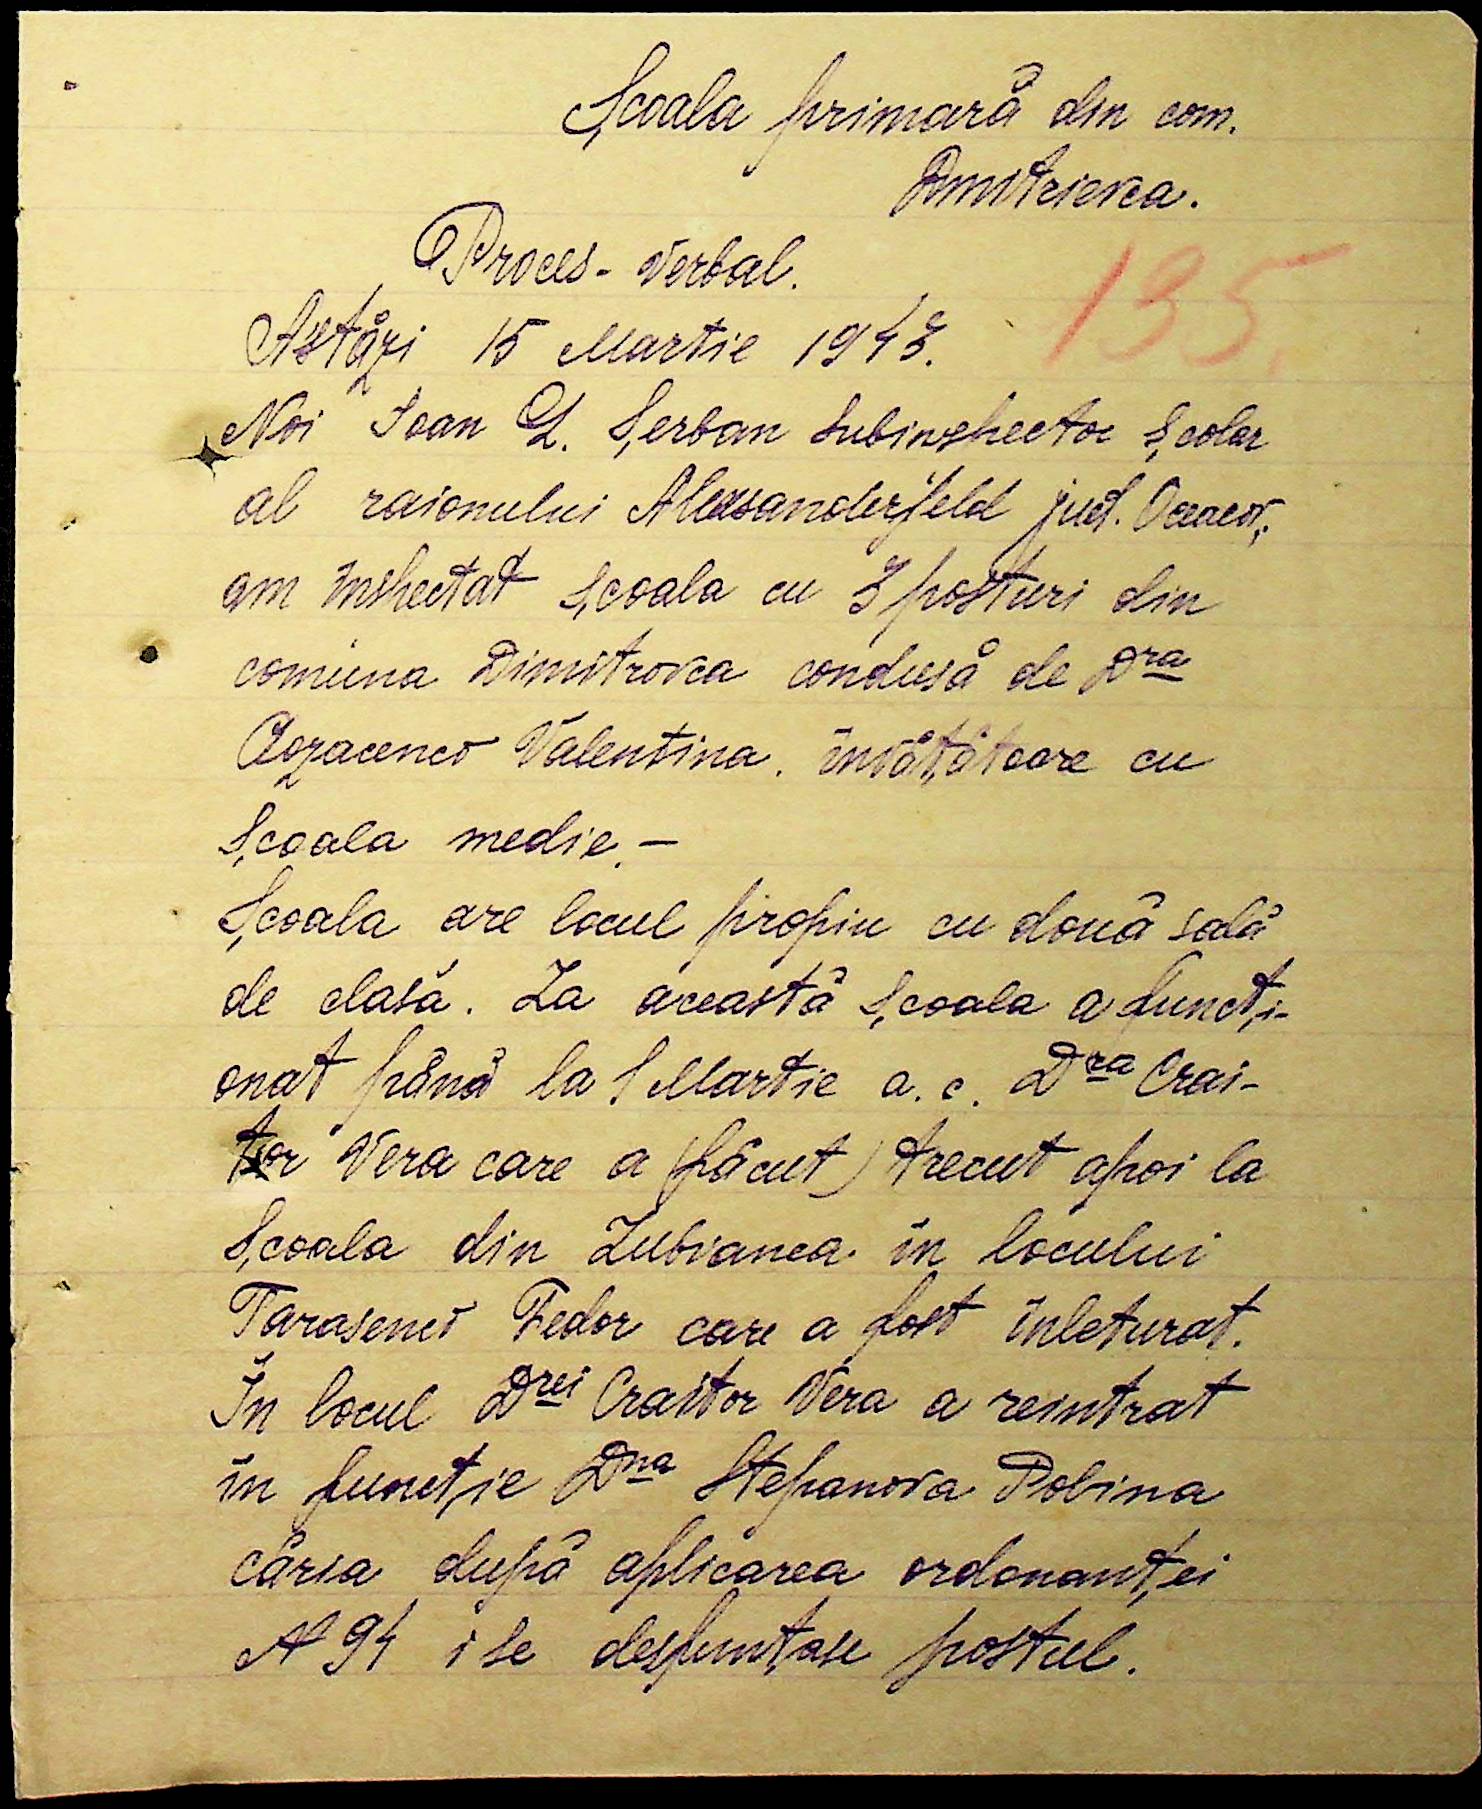 Școala primară din com.
Dmitrievca.
Proces-Verbal.
135.
Astăzi 15 Martie 1943.
Noi Ioan L. Șerban Subinspector Școlar
al raionului Alexsanderfeld jud. Oceacov,
am inspectat Școala cu 3 posturi din
comuna Dimitrovca condusă de Dra
Cozacenco Valentina. învățătoare cu
Școala medie.—
Școala are locul propiu cu două sală
de clasă. La această Școala a funcți-
onat până la 1 Martie a. c. Dra Crai-
tor Vera care a (făcut) trecut apoi la
Școala din Lubianca în locului
Tarasenco Fedor care a fost înleturat.
În locul Drei Craitor Vera a reintrat
în funcție Dna Stepanova Polina
căria după aplicarea ordonanței
N 94 i se desfințase postul.